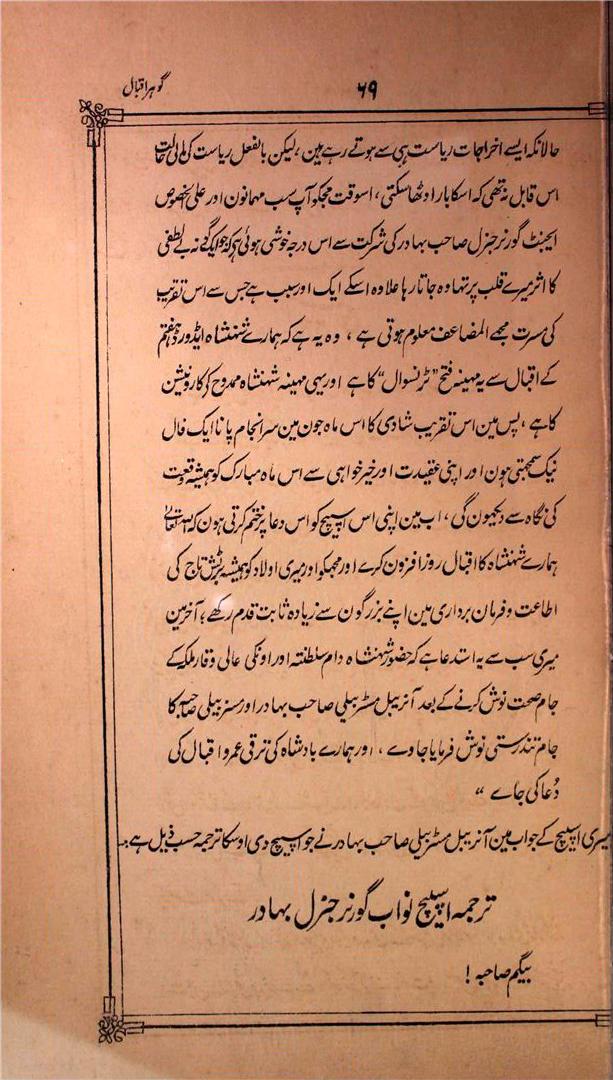 ۶۹
گوہر اقبال
حالانکہ ایسے اخراجات ریاست ہی سے ہوتے رہے ہین ، لیکن بالفعل ریاست کی مالی حالت
اس قابل نہ تھی کہ اسکا بار اوٹھا سکتی ، اسوقت مجکو آپ سب مہمانون اور علی الخصوص
ایجنٹ گورنر جنرل صاحب بہادر کی شرکت سے اس درجہ خوشی ہوئی ہے کہ جو ایک گونہ بے لطفی
کا اثر میرے قلب پر تھا وہ جاتا رہا علاوہ اسکے ایک اور سبب ہے جس سے اس تقریب
کی مسرت مجھے المضاعف معلوم ہوتی ہے ، وہ یہ ہے کہ ہمارے شہنشاہ ایڈورڈ ہفتم
کے اقبال سے یہ مہینہ فتح "ٹرنسوال" کا ہے اور یہی مہینہ شہنشاہ ممدوح کی کارونیشن
کا ہے ، پس مین اس تقریب شادی کا اس ماہ جون مین سر انجام پانا ایک فال
نیک سمجھتی ہون اور اپنی عقیدت اور خیر خواہی سے اس ماہ مبارک کو ہمیشہ وقعت
کی نگاہ سے دیکھون گی ، اب مین اپنی اس اسپیچ کو اس دعا پر ختم کرتی ہون کہ اللہ تعالیٰ
ہمارے شہنشاہ کا اقبال روز افزون کرے اور مجکو اور میری اولاد کو ہمیشہ برٹش تاج کی
اطاعت و فرمان برداری مین اپنے بزرگون سے زیادہ ثابت قدم رکھے ؛ آخر مین
میری سب سے یہ استدعا ہے کہ حضور شہنشاہ دام سلطنتہ اور اونکی عالی وقار ملکہ کے
جام صحت نوش کرنے کے بعد آنریبل مسٹر بیلی صاحب بہادر اور مسز بیلی صاحبہ کا
جام تندرستی نوش فرمایا جاوے ، اور ہمارے بادشاہ کی ترقی عمر و اقبال کی
دُعا کی جاے "
میری اسپیچ کے جواب مین آنریبل مسٹر بیلی صاحب بہادر نے جو اسپیچ دی اوسکا ترجمہ حسب ذیل ہے :-
ترجمہ اسپیچ نواب گورنر جنرل بہادر
بیگم صاحبہ !